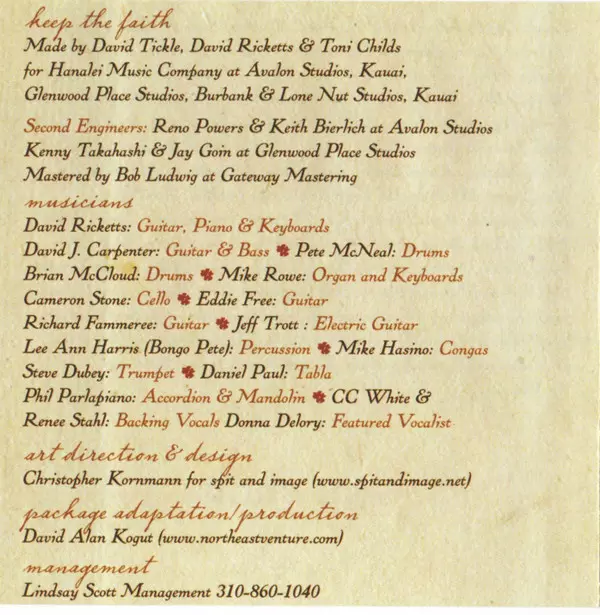 keep the faith
Made by David Tickle, David Ricketts & Toni Childs
for Hanalei Music Company at Avalon Studios, Kauai,
Glenwood Place Studios, Burbank & Lone Nut Studios, Kauai
Second Engineers: Reno Powers & Keith Bierlich at Avalon Studios
Kenny Takahashi & Jay Goin at Glenwood Place Studios
Mastered by Bob Ludwig at Gateway Mastering
musicians
David Ricketts: Guitar, Piano & Keyboards
David J. Carpenter: Guitar & Bass Pete McNeal: Drums
Brian McCloud: Drums Mike Rowe: Organ and Keyboards
Cameron Stone: Cello Eddie Free: Guitar
Richard Fammeree: Guitar Jeff Trott : Electric Guitar
Lee Ann Harris (Bongo Pete): Percussion Mike Hasino: Congas
Steve Dubey: Trumpet Daniel Paul: Tabla
Phil Parlapiano: Accordion & Mandolin CC White &
Renee Stahl: Backing Vocals Donna Delory: Featured Vocalist
art direction & design
Christopher Kornmann for spit and image (www.spitandimage.net)
package adaptation/production
David Alan Kogut (www.northeastventure.com)
management
Lindsay Scott Management 310-860-1040